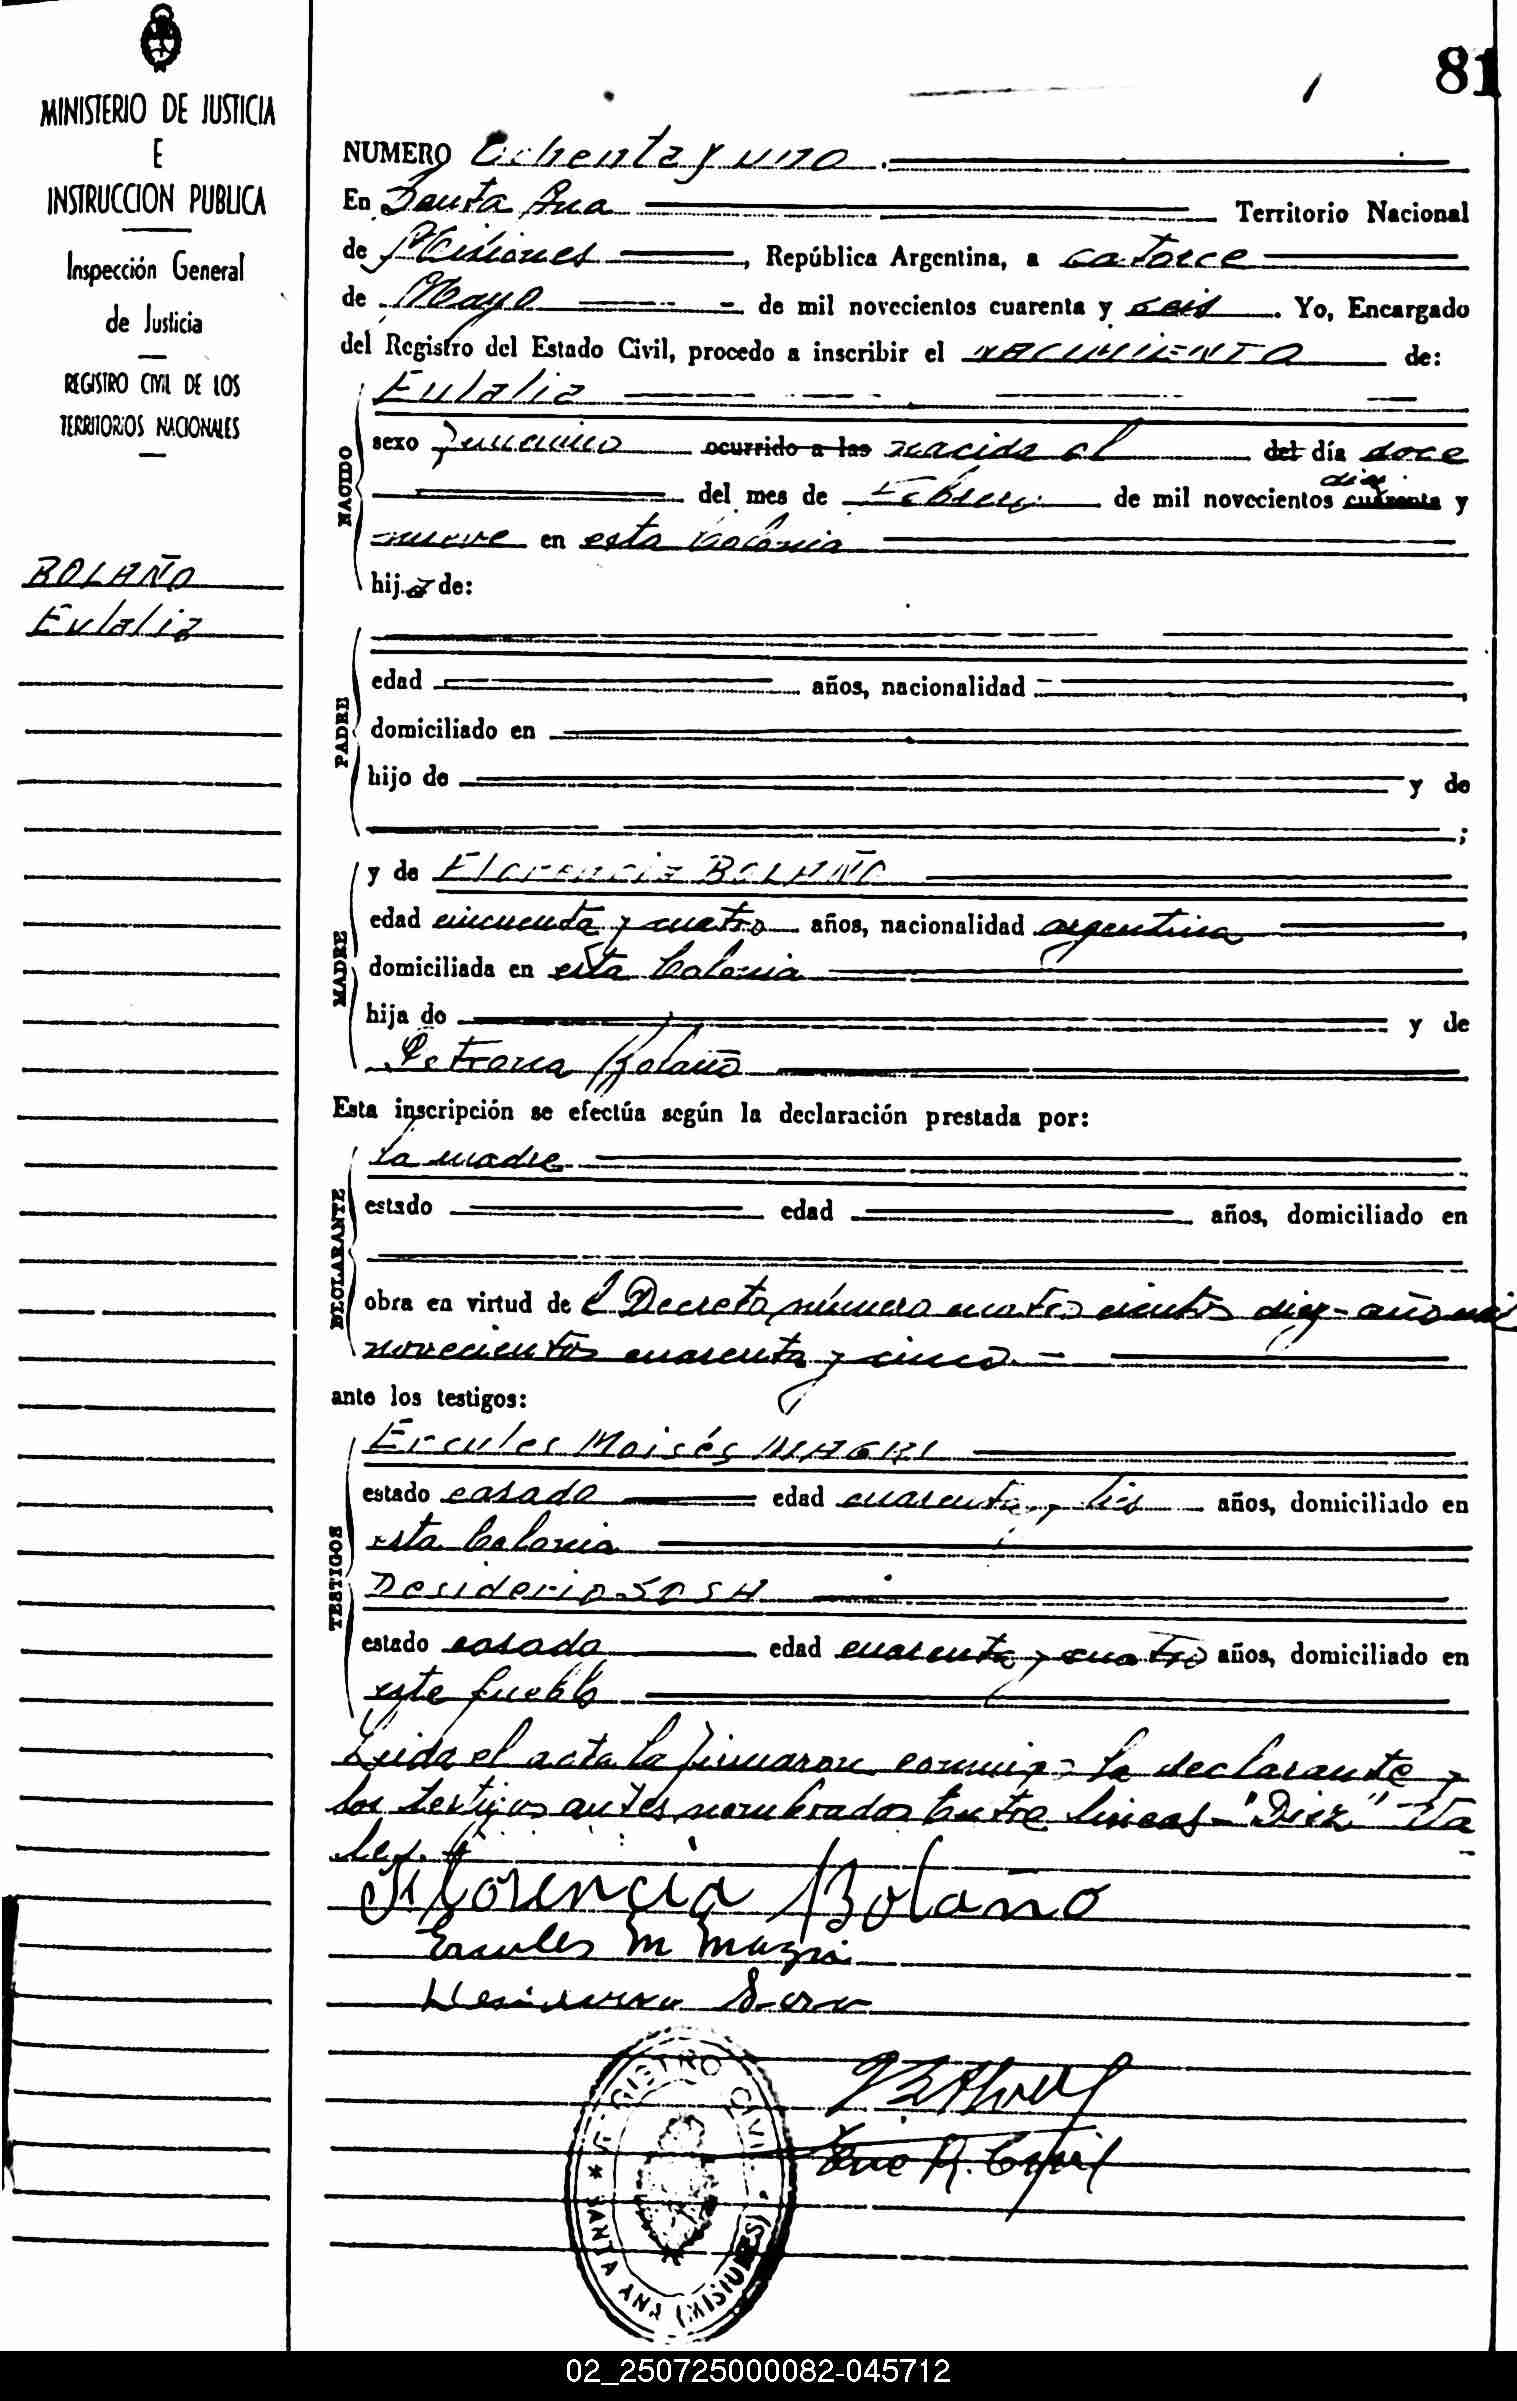 MINISTERIO DE JUSTICIA
E
INSTRUCCION PUBLICA
Inspección General
de Justicia
REGISTRO CIVIL DE LOS
TERRITORIOS NACIONALES
BOLAÑO
Eulalia
81
NUMERO Ochenta y uno
En Santa Ana Territorio Nacional
de Misiones, República Argentina, a catorce
de Mayo de mil novecientos cuarenta y seis. Yo, Encargado
del Registro del Estado Civil, procedo a inscribir el NACIMIENTO de:
NACIDO
Eulalia
sexo femenino ocurrido a las nacida el del día doce
diez
del mes de Febrero de mil novecientos cuarenta y
nueve en esta Colonia
hija de:
PADRE
edad años, nacionalidad
domiciliado en
hijo de y de
;
MADRE
y de Florencia BOLAÑO
edad cincuenta y cuatro años, nacionalidad argentina
domiciliada en esta Colonia
hija de y de
Petrona Bolaño
Esta inscripción se efectúa según la declaración prestada por:
DECLARANTE
la madre
estado edad años, domiciliado en
obra en virtud del Decreto número cuatro cientos diez - año mil
novecientos cuarenta y cinco.-
ante los testigos:
TESTIGOS
Ercules Moisés MAGRI
estado casado edad cuarenta y años, domiciliado en
esta Colonia
Desiderio SOSA
estado casado edad cuarenta y cuatro años, domiciliado en
este pueblo
Leida el acta la firmaron conmigo la declarante y
los testigos antes nombrados Entre lineas - "Diez" Va
le.
Florencia Bolaño
Ercules M Magri
Desiderio Sosa
REGISTRO CIVIL
SANTA ANA (MISIONES)
02_250725000082-045712